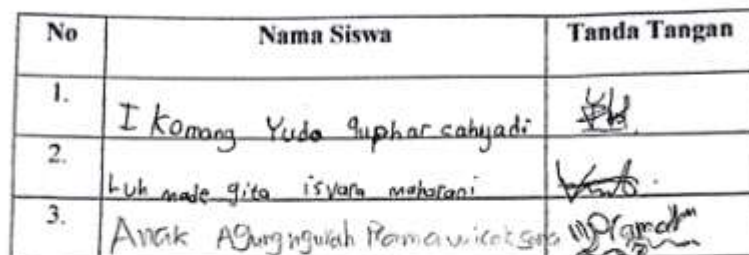 No Nama Siswa Tanda Tangan
1. I Komang Yuda guphar cahyadi
2. Luh made gita isvara maharani
3. Anak Agung ngurah Ramawicaksana